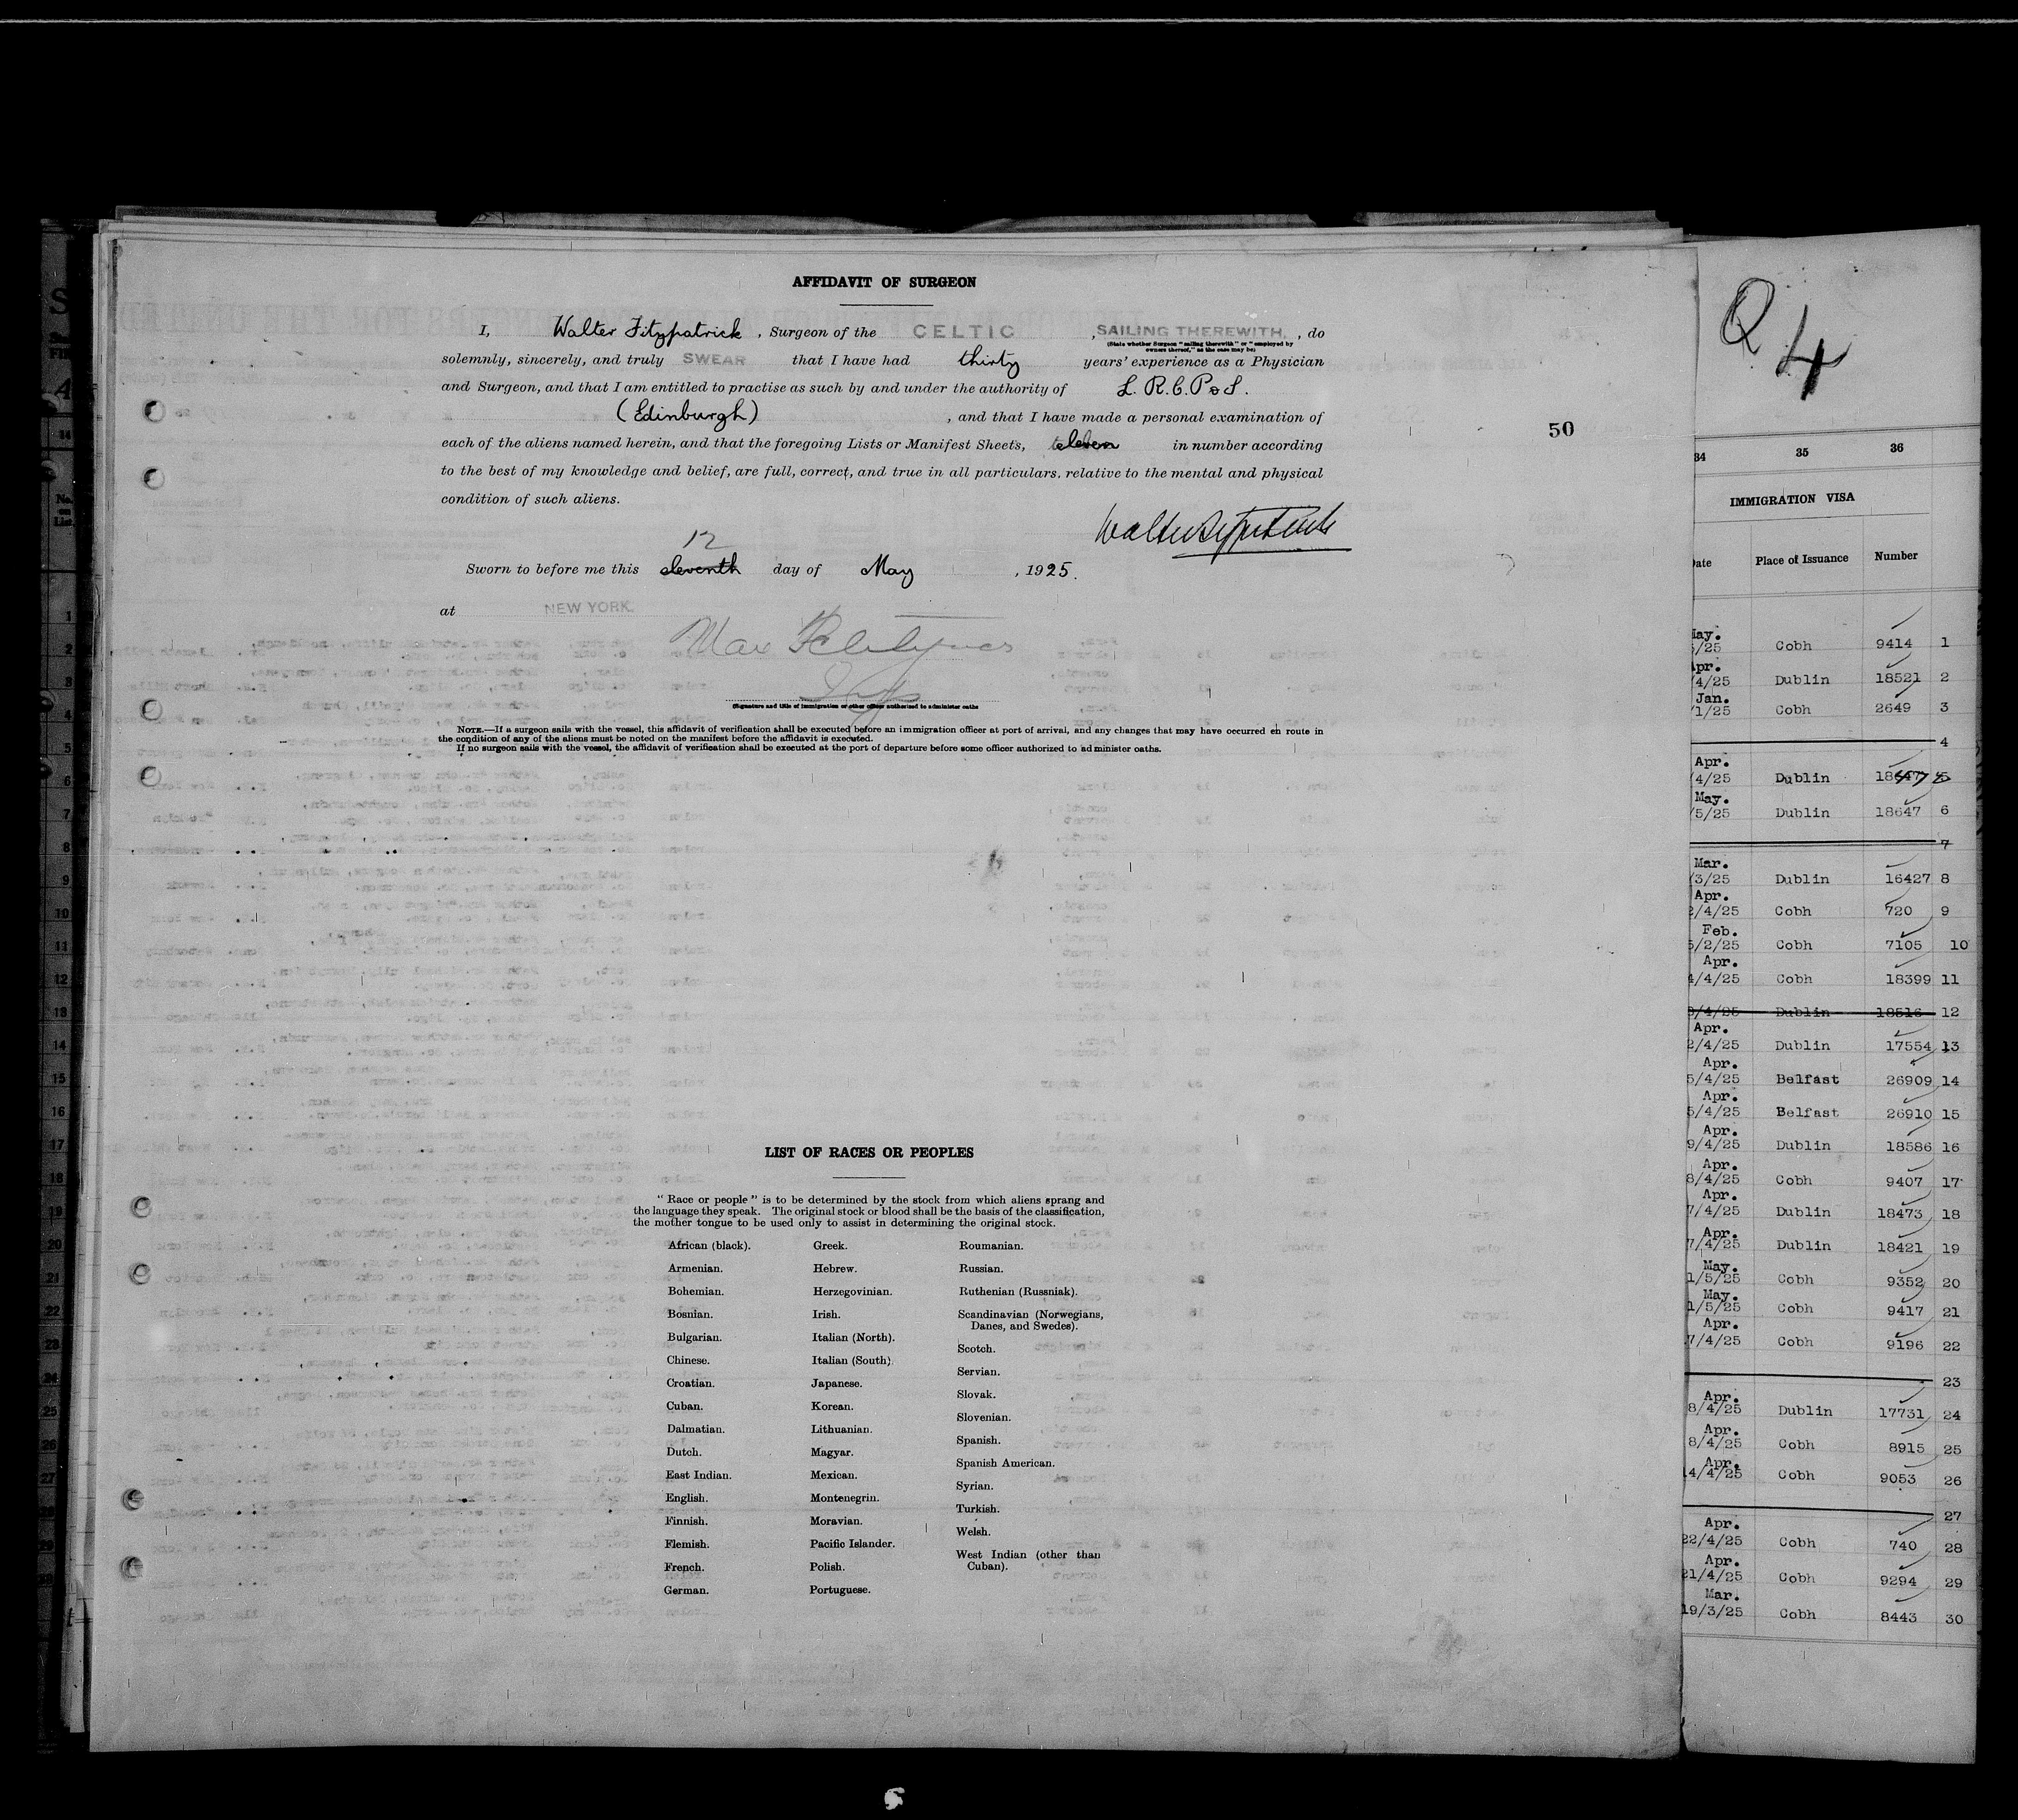 AFFIDAVIT OF SURGEON
I, Walter Fitzpatrick, Surgeon of the CELTIC, SAILING THEREWITH, do
(State whether Surgeon "sailing therewith" or "employed by
owners thereof," as the case may be)
solemnly, sincerely, and truly SWEAR that I have had thirty years' experience as a Physician
and Surgeon, and that I am entitled to practise as such by and under the authority of L. R. C. P & S.
(Edinburgh), and that I have made a personal examination of
each of the aliens named herein, and that the foregoing Lists or Manifest Sheets, eleven in number according
to the best of my knowledge and belief, are full, correct, and true in all particulars, relative to the mental and physical
condition of such aliens.
Walter Fitzpatrick
12
Sworn to before me this eleventh day of May, 1925.
at NEW YORK.
Max
Insp
(Signature and title of immigration or other officer authorized to administer oaths
NOTE.—If a surgeon sails with the vessel, this affidavit of verification shall be executed before an immigration officer at port of arrival, and any changes that may have occurred en route in
the condition of any of the aliens must be noted on the manifest before the affidavit is executed.
If no surgeon sails with the vessel, the affidavit of verification shall be executed at the port of departure before some officer authorized to administer oaths.
50
LIST OF RACES OR PEOPLES
"Race or people" is to be determined by the stock from which aliens sprang and
the language they speak. The original stock or blood shall be the basis of the classification,
the mother tongue to be used only to assist in determining the original stock.
African (black).
Armenian.
Bohemian.
Bosnian.
Bulgarian.
Chinese.
Croatian.
Cuban.
Dalmatian.
Dutch.
East Indian.
English.
Finnish.
Flemish.
French.
German.
Greek.
Hebrew.
Herzegovinian.
Irish.
Italian (North).
Italian (South).
Japanese.
Korean.
Lithuanian.
Magyar.
Mexican.
Montenegrin.
Moravian.
Pacific Islander.
Polish.
Portuguese.
Roumanian.
Russian.
Ruthenian (Russniak).
Scandinavian (Norwegians,
Danes, and Swedes).
Scotch.
Servian.
Slovak.
Slovenian.
Spanish.
Spanish American.
Syrian.
Turkish.
Welsh.
West Indian (other than
Cuban).
Q 4
34 35 36
IMMIGRATION VISA
Date Place of Issuance Number
May.
5/25 Cobh 9414 1
Apr.
/4/25 Dublin 18521 2
Jan.
/1/25 Cobh 2649 3
4
Apr.
/4/25 Dublin 5
May.
/5/25 Dublin 18647 6
7
Mar.
/3/25 Dublin 16427 8
Apr.
2/4/25 Cobh 720 9
Feb.
5/2/25 Cobh 7105 10
Apr.
4/4/25 Cobh 18399 11
3/4/25 Dublin 18516 12
Apr.
2/4/25 Dublin 17554 13
Apr.
5/4/25 Belfast 26909 14
Apr.
5/4/25 Belfast 26910 15
Apr.
9/4/25 Dublin 18586 16
Apr.
8/4/25 Cobh 9407 17
Apr.
7/4/25 Dublin 18473 18
Apr.
7/4/25 Dublin 18421 19
May.
1/5/25 Cobh 9352 20
May.
1/5/25 Cobh 9417 21
Apr.
7/4/25 Cobh 9196 22
23
Apr.
8/4/25 Dublin 17731 24
Apr.
8/4/25 Cobh 8915 25
Apr.
14/4/25 Cobh 9053 26
27
Apr.
22/4/25 Cobh 740 28
Apr.
21/4/25 Cobh 9294 29
Mar.
19/3/25 Cobh 8443 30